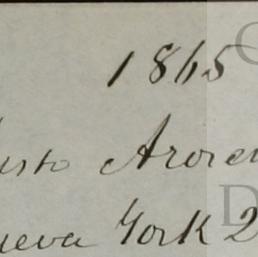 1865
usto Arose
ueva York 2